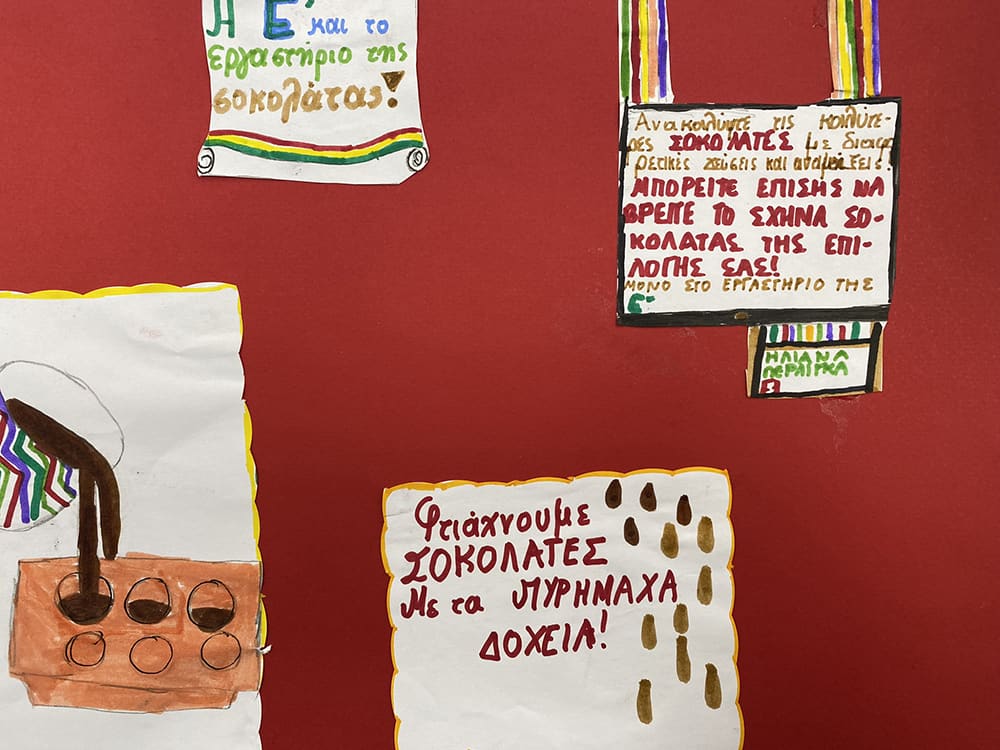 Η Ε΄ και το
εργαστήριο της
σοκολάτας!
Ανακαλύψτε τις καλύτε-
ρες ΣΟΚΟΛΑΤΕΣ με διαφο
ρετικές γεύσεις και αναμείξεις!
ΜΠΟΡΕΙΤΕ ΕΠΙΣΗΣ ΝΑ
ΒΡΕΙΤΕ ΤΟ ΣΧΗΜΑ ΣΟ-
ΚΟΛΑΤΑΣ ΤΗΣ ΕΠΙ-
ΛΟΓΗΣ ΣΑΣ!
ΜΟΝΟ ΣΤΟ ΕΡΓΑΣΤΗΡΙΟ ΤΗΣ
Ε΄
ΗΛΙΑΝΑ
Φτιάχνουμε
ΣΟΚΟΛΑΤΕΣ
Με τα ΠΥΡΗΜΑΧΑ
ΔΟΧΕΙΑ!